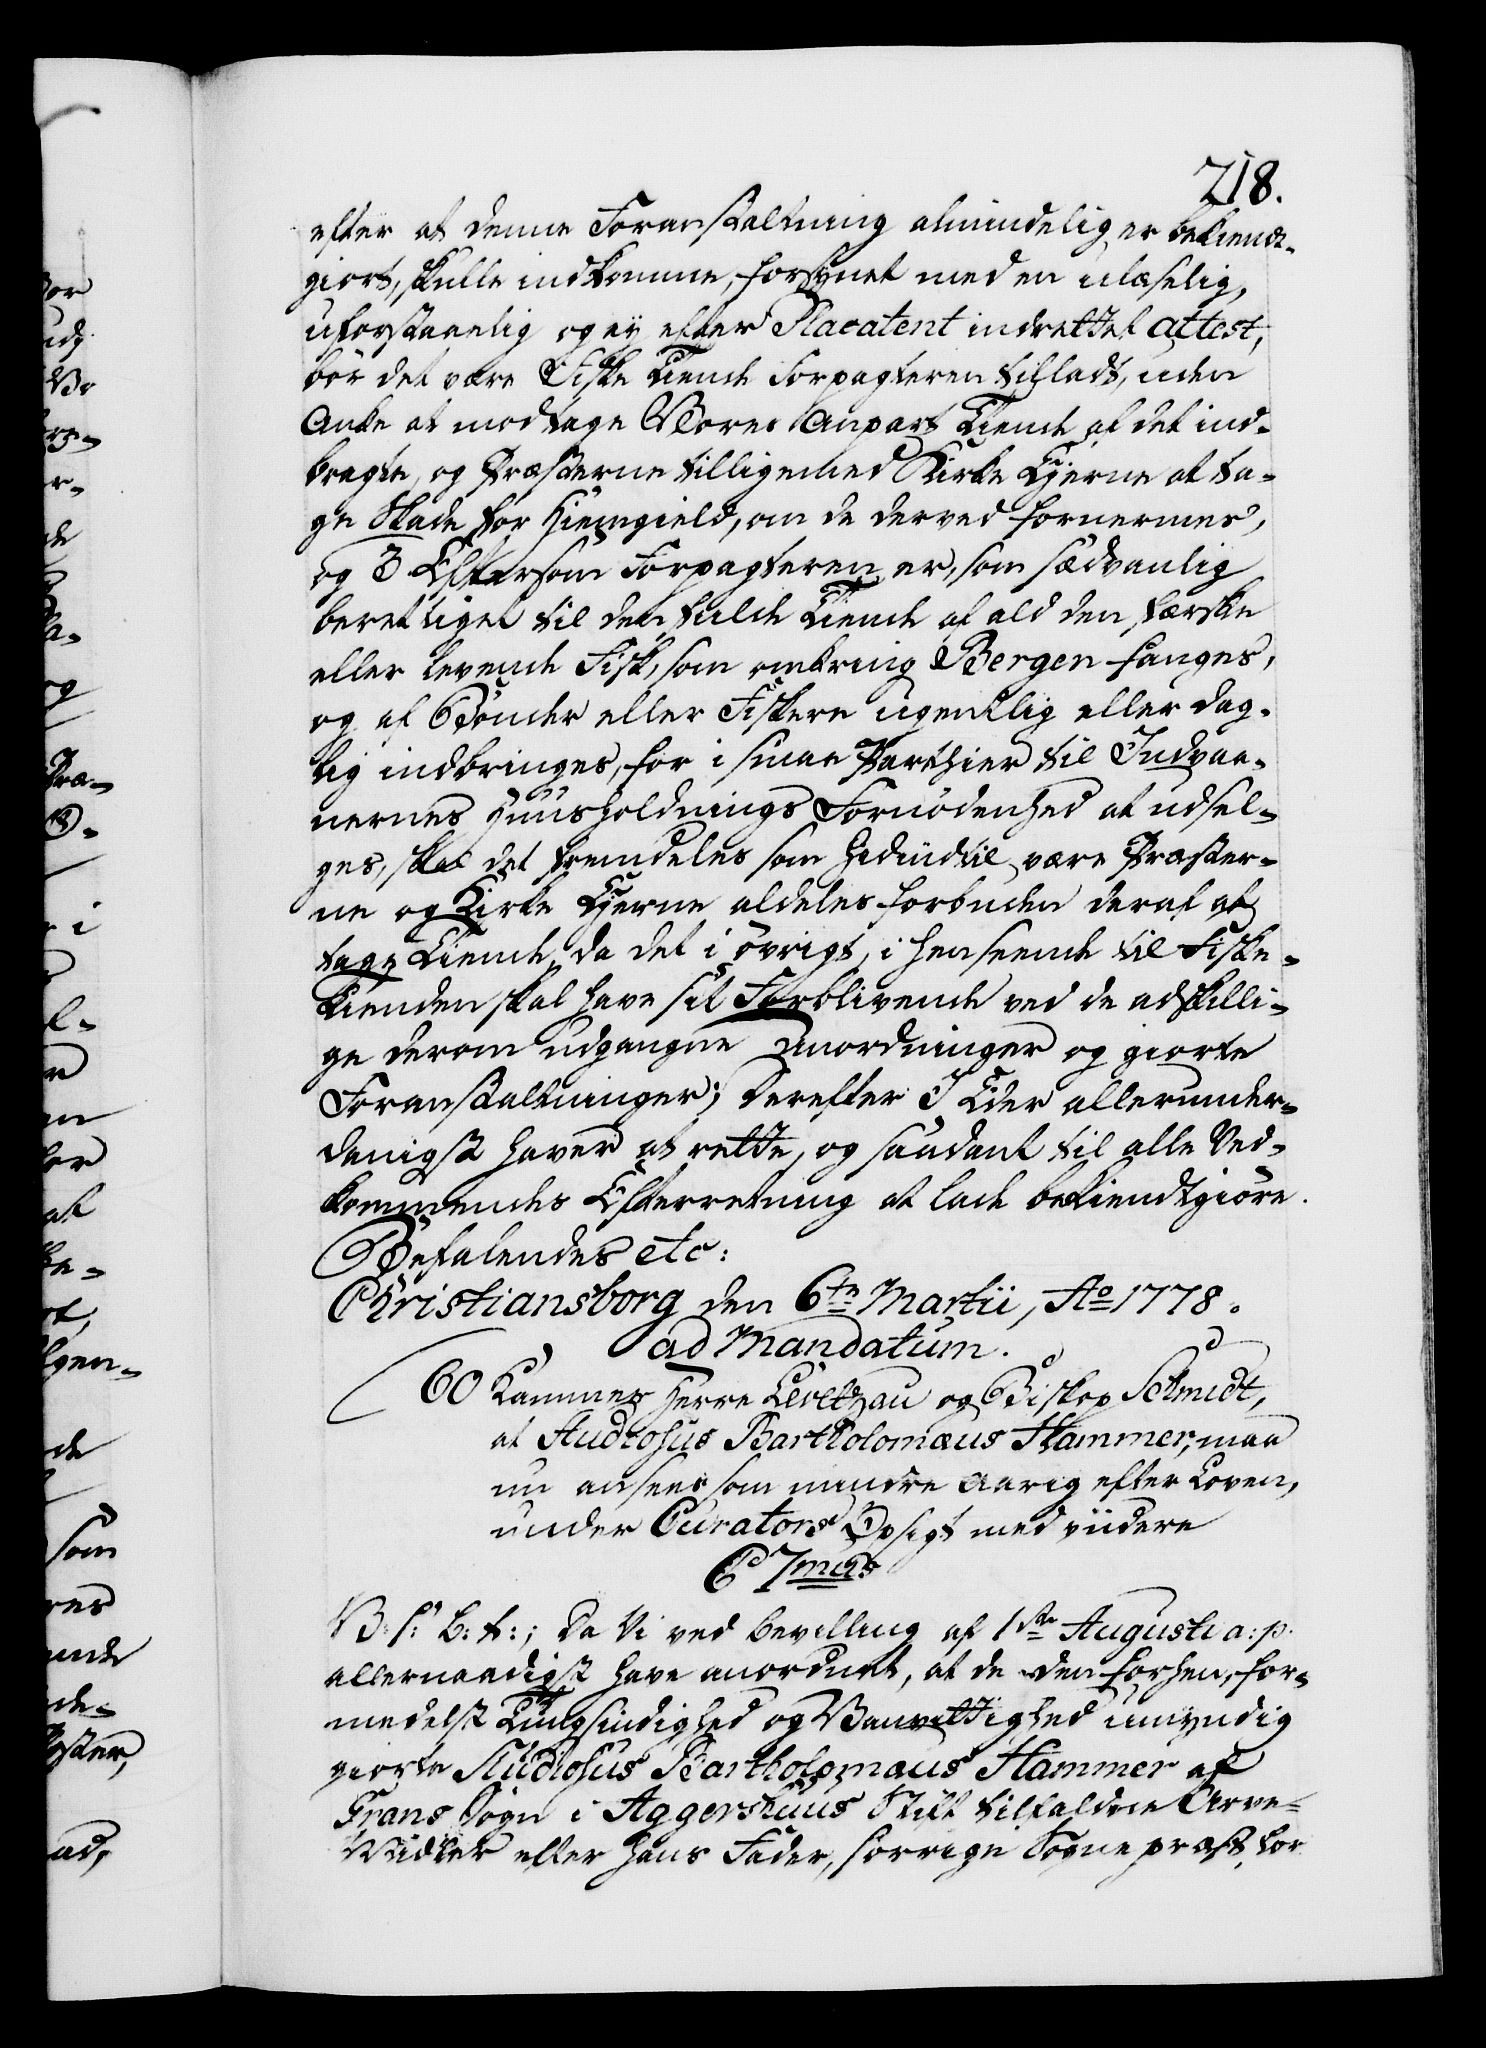 218.
efter at denne Foranstaltning almindelig er bekiendt-
giort, skulle indkomme, forsynet med en ulæselig,
uforstaaelig og ey efter Placatent indrettet attest,
bör det være Fiske Tiende Forpagteren tilladt, uden
Anke at modtage Vores Anpart Tiende af det ind-
bragte, og Præsterne tilligemed Kirke Ejerne at ta-
ge Skade for Hiemgield, om de derved fornermes,
og 3 Eftersom Forpagteren er, som sædvanlig
berettiget til den fulde Tiende af ald den færske
eller levende Fisk, som omkring Bergen fanges,
og af Bönder eller Fiskere ugentlig eller dag-
lig indbringes, for i smaa Parthier til Indvaa-
nernes Huusholdnings Fornödenhed at udsel-
ges, skal det fremdeles som hidindtil være Præster-
ne og Kirke Ejerne aldeles forbuden deraf at
tage Tiende, da det i övrigt, i henseende til Fiske-
Tienden skal have sit Forblivende ved de adskilli-
ge derom udgangne Anordninger og giorte
Foranstaltninger; Derefter I Eder allerunder-
danigst haver at rette, og saadant til alle Ved-
kommendes Efterretning at lade bekiendtgiöre.
Befalendes etc:
Christiansborg den 6te Martii, Ao 1778.
ad Mandatum.
60 Kammer Herre Levetzau og Biskop Schmidt,
at Studiosus Bartholomæus Hammer, maa
nu ansees som mindre Aarig efter Loven,
under Curators Opsigt med viidere
C 7mus
V: s: b: t:; Da Vi ved Bevilling af 1ste Augusti a: p.
allernaadigst have anordnet, at de den forhen, for-
medelst Tungsindighed og Vanvittighed umyndig
giorte Studiosus Bartholomæus Hammer af
Grans Sogn i Aggershuus Stift tilfaldne Arve-
Midler efter hans Fader, forrige Sognepræst for